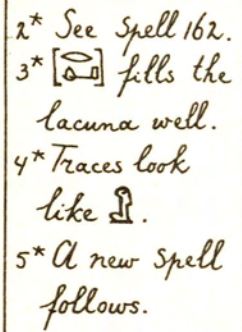 2* See Spell 162.
3* [𓂋𓏺𓊪] fills the
lacuna well.
4* Traces look
like 𓋾.
5* A new spell
follows.